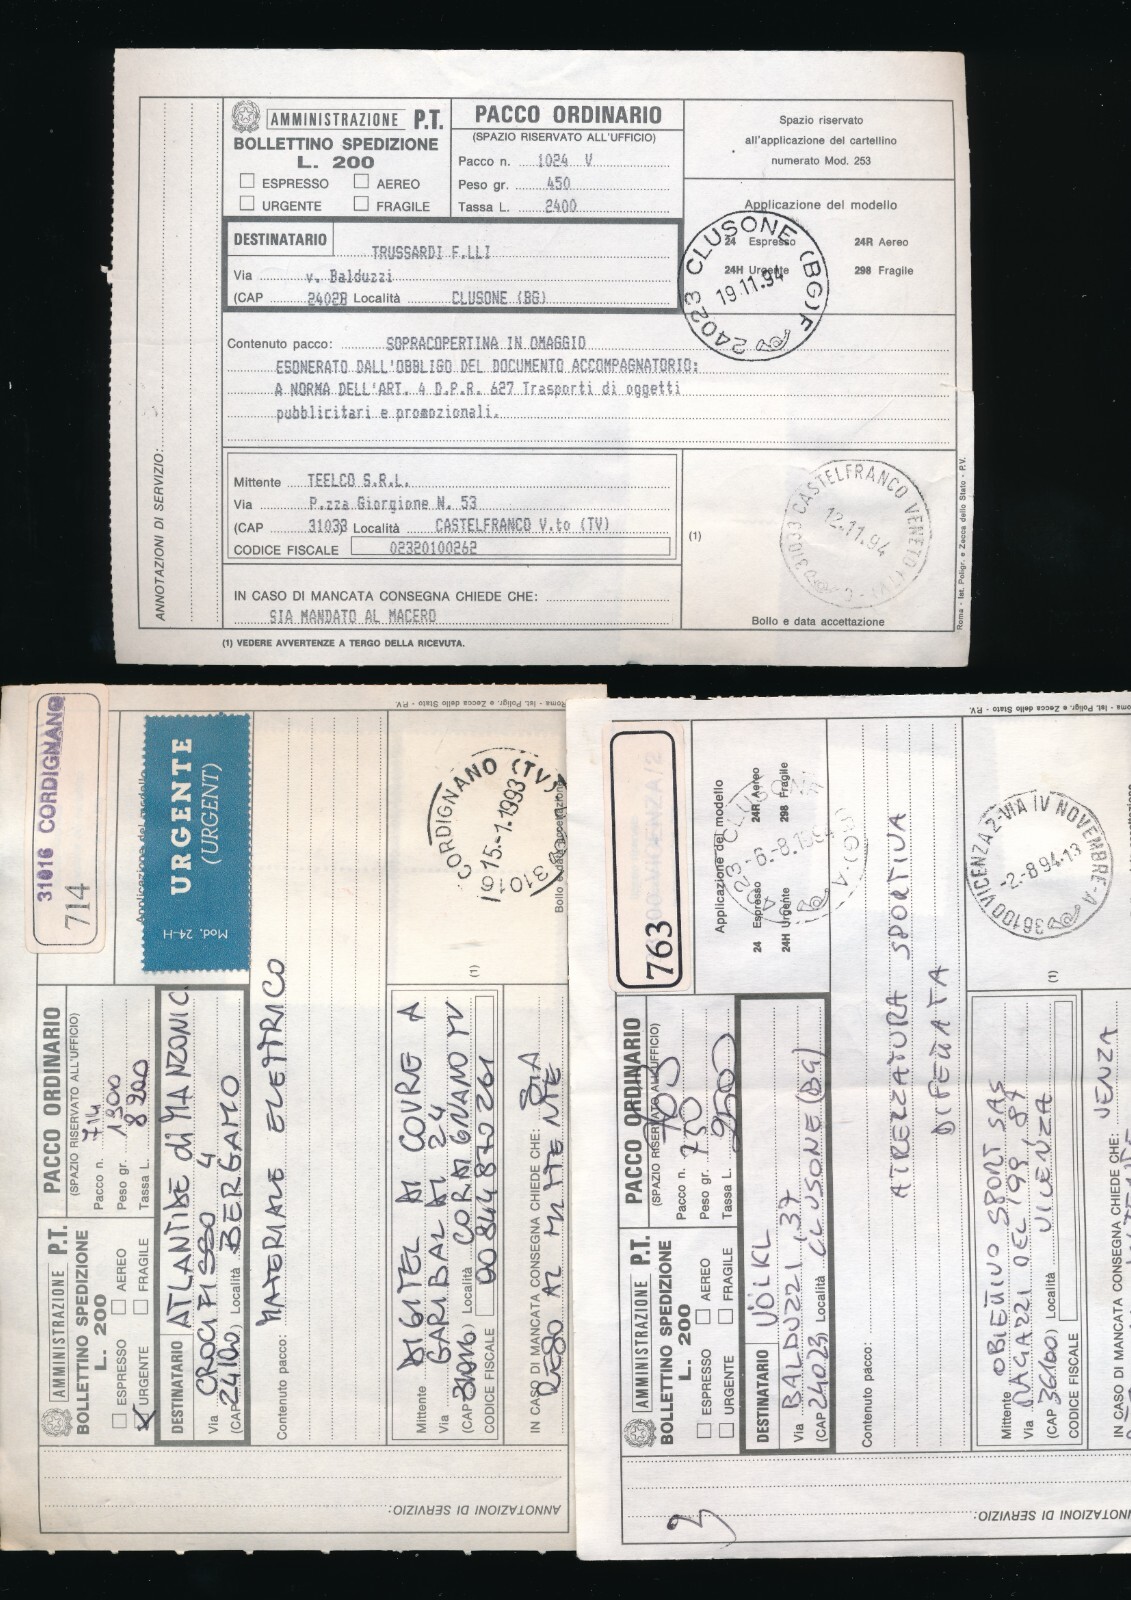 AMMINISTRAZIONE P.T.
BOLLETTINO SPEDIZIONE
L. 200
ESPRESSO AEREO
URGENTE FRAGILE
PACCO ORDINARIO
(SPAZIO RISERVATO ALL'UFFICIO)
Pacco n. 1024 V
Peso gr. 450
Tassa L. 2400
Spazio riservato
all'applicazione del cartellino
numerato Mod. 253
Applicazione del modello
24 Espresso 24R Aereo
24H Urgente 298 Fragile
24023 CLUSONE (BG) F
19.11.94
DESTINATARIO TRUSSARDI F.LLI
Via v. Balduzzi
(CAP 24028 Località CLUSONE (BG)
Contenuto pacco: SOPRACOPERTINA IN OMAGGIO
ESONERATO DALL'OBBLIGO DEL DOCUMENTO ACCOMPAGNATORIO:
A NORMA DELL'ART. 4 D.P.R. 627 Trasporti di oggetti
pubblicitari e promozionali.
Mittente TEELCO S.R.L.
Via P.zza Giorgione N. 53
(CAP 31033 Località CASTELFRANCO V.to (TV)
CODICE FISCALE 02320100262
IN CASO DI MANCATA CONSEGNA CHIEDE CHE:
SIA MANDATO AL MACERO
(1)
31033 CASTELFRANCO VENETO (TV)
12.11.94
Bollo e data accettazione
ANNOTAZIONI DI SERVIZIO:
Roma - Ist. Poligr. e Zecca dello Stato - P.V.
(1) VEDERE AVVERTENZE A TERGO DELLA RICEVUTA.
31016 CORDIGNANO
714
AMMINISTRAZIONE P.T.
BOLLETTINO SPEDIZIONE
L. 200
ESPRESSO AEREO
URGENTE FRAGILE
PACCO ORDINARIO
(SPAZIO RISERVATO ALL'UFFICIO)
Pacco n. 714
Peso gr. 1300
Tassa L. 8200
Applicazione del modello
URGENTE
(URGENT)
Mod. 24-H
DESTINATARIO ATLANTIDE di MANZONI C.
Via CROCIFISSO 4
(CAP 24100) Località BERGAMO
Contenuto pacco: MATERIALE ELETTRICO
Mittente DIGITEL DI COVRE A
Via GARIBALDI 24
(CAP 31016) Località CORDIGNANO TV
CODICE FISCALE 00844870261
IN CASO DI MANCATA CONSEGNA CHIEDE CHE: SIA
RESO AL MITTENTE
(1)
31016 CORDIGNANO (TV)
15.-1.1993
Bollo e data accettazione
ANNOTAZIONI DI SERVIZIO:
Roma - Ist. Poligr. e Zecca dello Stato - P.V.
763
AMMINISTRAZIONE P.T.
BOLLETTINO SPEDIZIONE
L. 200
ESPRESSO AEREO
URGENTE FRAGILE
PACCO ORDINARIO
(SPAZIO RISERVATO ALL'UFFICIO)
Pacco n.
Peso gr. 750
Tassa L. 9500
Applicazione del modello
24 Espresso 24R Aereo
24H Urgente 298 Fragile
-6.-8.1994
DESTINATARIO VÖLKL
Via BALDUZZI 37
(CAP 24023 Località CLUSONE (BG)
Contenuto pacco:
ATREZZATURA SPORTIVA
Mittente OBIETTIVO SPORT SAS
Via RAGAZZI DEL '99, 87
(CAP 36100) Località VICENZA
CODICE FISCALE
IN CASO DI MANCATA CONSEGNA CHIEDE CHE:
(1)
36100 VICENZA 2-VIA IV NOVEMBRE-A
-2.-8.94-13
ANNOTAZIONI DI SERVIZIO:
Roma - Ist. Poligr. e Zecca dello Stato - P.V.